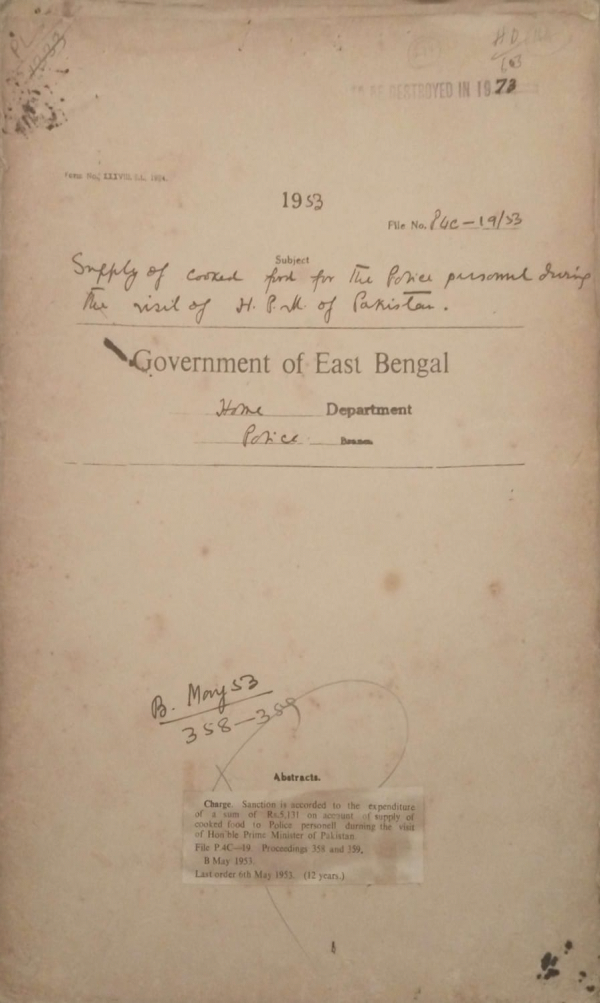 TO BE DESTROYED IN 1973
1953
File No. P4C-19/53
Subject
Supply of cooked food for the Police personnel during
the visit of H. P. M. of Pakistan.
Government of East Bengal
Home Department
Police Branch
B. May 53
358-359
Abstracts.
Charge. Sanction is accorded to the expenditure
of a sum of Rs.5,131 on account of supply of
cooked food to Police personell durning the visit
of Hon'ble Prime Minister of Pakistan.
File P.4C—19. Proceedings 358 and 359.
B May 1953.
Last order 6th May 1953. (12 years.)